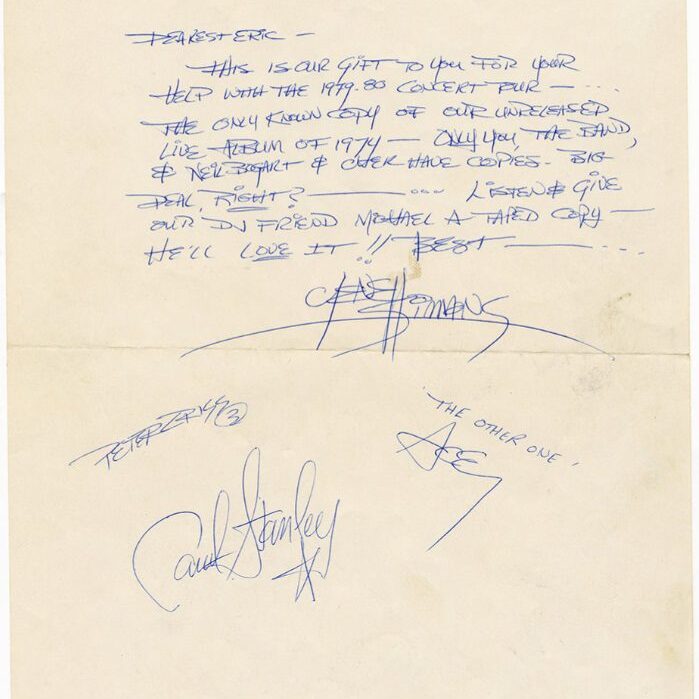 DEAREST ERIC —
THIS IS OUR GIFT TO YOU FOR YOUR
HELP WITH THE 1979-80 CONCERT TOUR — ...
THE ONLY KNOWN COPY OF OUR UNRELEASED
LIVE ALBUM OF 1974 — ONLY YOU, THE BAND,
& NEIL BOGART & CHER HAVE COPIES. BIG
DEAL, RIGHT? — ... LISTEN & GIVE
OUR DJ FRIEND MICHAEL A TAPED COPY —
HE'LL LOVE IT !! BEST — ...
GENE SIMMONS
PETER CRISS
'THE OTHER ONE'
ACE
Paul Stanley